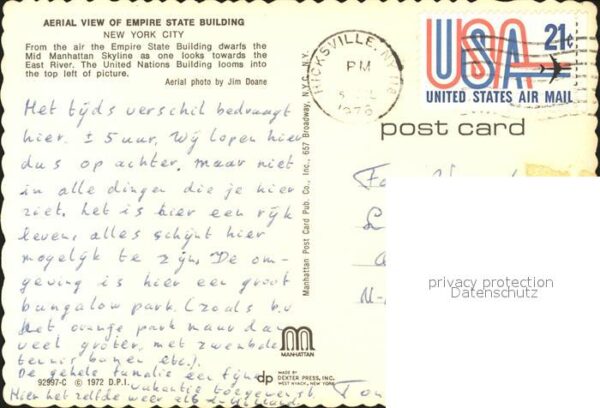 AERIAL VIEW OF EMPIRE STATE BUILDING
NEW YORK CITY
From the air the Empire State Building dwarfs the
Mid Manhattan Skyline as one looks towards the
East River. The United Nations Building looms into
the top left of picture.
Aerial photo by Jim Doane
Het tijds verschil bedraagt
hier. ± 5 uur. Wij lopen hier
dus op achter, maar niet
in alle dingen die je hier
ziet, het is hier een rijk
leven, alles schijnt hier
mogelijk te zijn. De om-
geving is hier een groot
bungalow park. (zoals b.v
het oranje park maar dan
veel groter, met zwembade
tennis banen etc.).
De gehele familie een fijne
vakantie toegewenst.
Hier het zelfde weer als in
92997-C © 1972 D.P.I.
Manhattan Post Card Pub. Co., Inc., 657 Broadway, N.Y.C., N.Y.
MANHATTAN
dp
MADE BY
DEXTER PRESS, INC.
WEST NYACK, NEW YORK
HICKSVILLE, N.Y.
PM
USA 21¢
UNITED STATES AIR MAIL
post card
privacy protection
Datenschutz